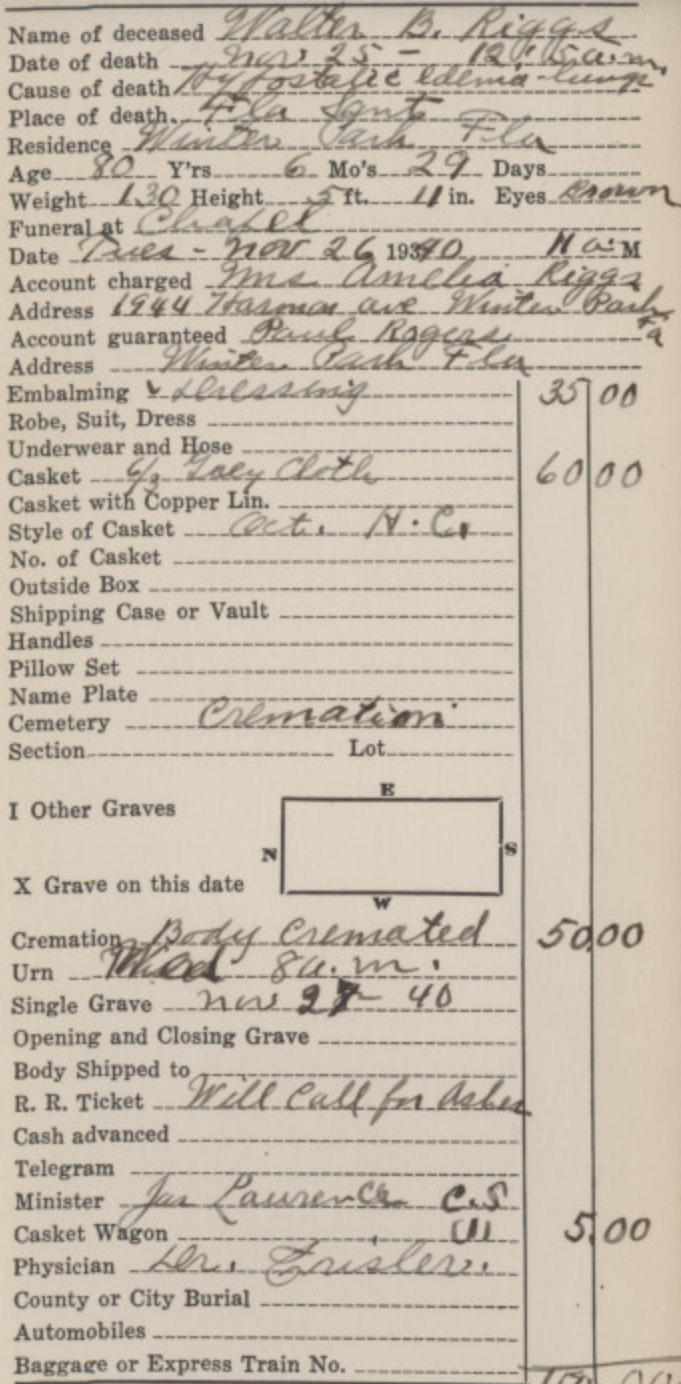 Name of deceased Walter B. Riggs
Date of death Nov 25 - 12:15 a.m.
Cause of death Hypostatic edema-lungs
Place of death. Fla Sant
Residence Winter Park Fla
Age 80 Y'rs 6 Mo's 29 Days
Weight 130 Height 5 ft. 11 in. Eyes Brown
Funeral at Chapel
Date Tues - Nov 26 1940 11 a. M
Account charged Mrs. Amelia Riggs
Address 1944 ave Winter Park Fla
Account guaranteed Paul Rogers
Address Winter Park Fla
Embalming & Dressing 35 00
Robe, Suit, Dress
Underwear and Hose
Casket 6/3 Grey Cloth 60 00
Casket with Copper Lin.
Style of Casket Oct. H.C.
No. of Casket
Outside Box
Shipping Case or Vault
Handles
Pillow Set
Name Plate
Cemetery Cremation
Section Lot
E
I Other Graves
N S
X Grave on this date
W
Cremation Body Cremated 50.00
Urn Wed 8 a.m.
Single Grave Nov 27 - 40
Opening and Closing Grave
Body Shipped to
R. R. Ticket Will Call for Ashes
Cash advanced
Telegram
Minister Jas Lawrence C.S
Casket Wagon 5.00
Physician Dr.
County or City Burial
Automobiles
Baggage or Express Train No.